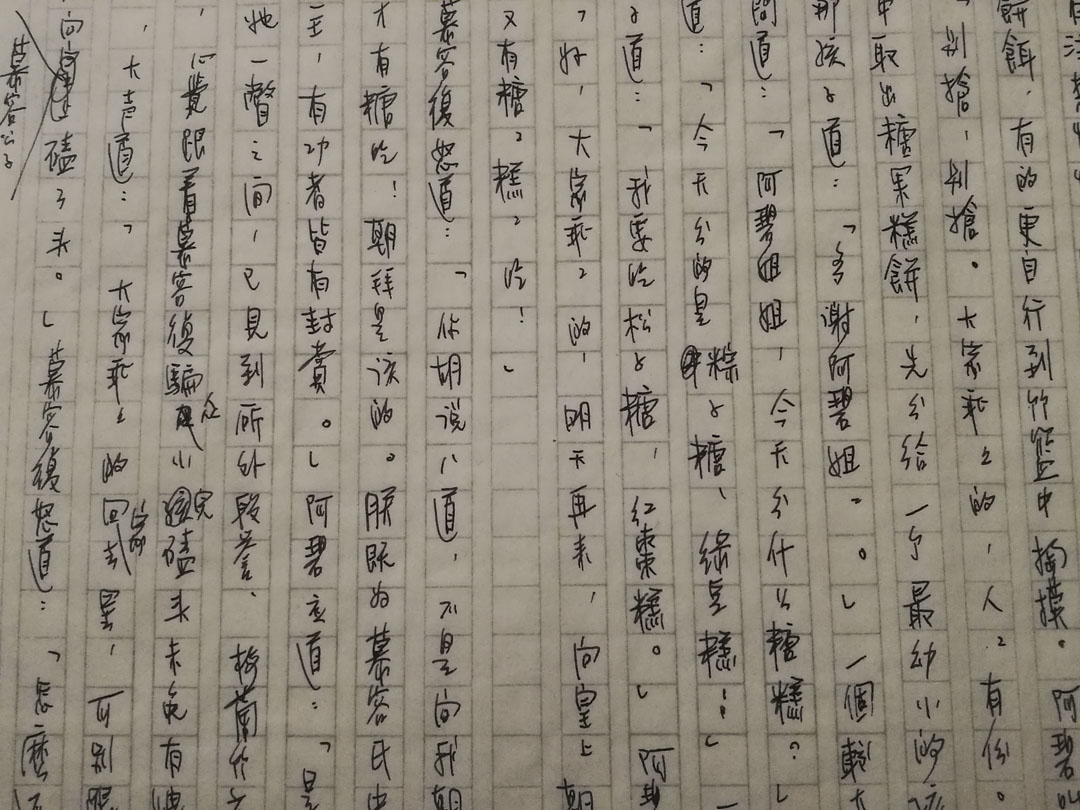 餅餌，有的更自行到竹籃中掏摸。阿碧
「别搶，别搶。大家乖乖的，人人有份。
中取出糖果糕餅，先分給一个最幼小的孩
那孩子道：「多謝阿碧姐。。」一個較
問道：「阿碧姐姐，今天分什么糖糕？」
道：「今天分的是粽子糖、綠豆糕！」
子道：「我要吃松子糖，紅棗糕。」阿碧
「好，大家乖乖的，明天再来，向皇上朝
又有糖糖糕糕吃！」
慕容復怒道：「你胡说八道，不是向我朝
才有糖吃！朝拜是该的。朕既为慕容氏
主，有功者皆有封賞。」阿碧应道：「是
她一瞥之间，已見到所外段誉、
，心覺跟着慕容復騙众小孩磕头未免有
，大声道：「大家乖乖的回家罢，可别跟
向 磕了头。」慕容復怒道：「怎麼
慕容公子